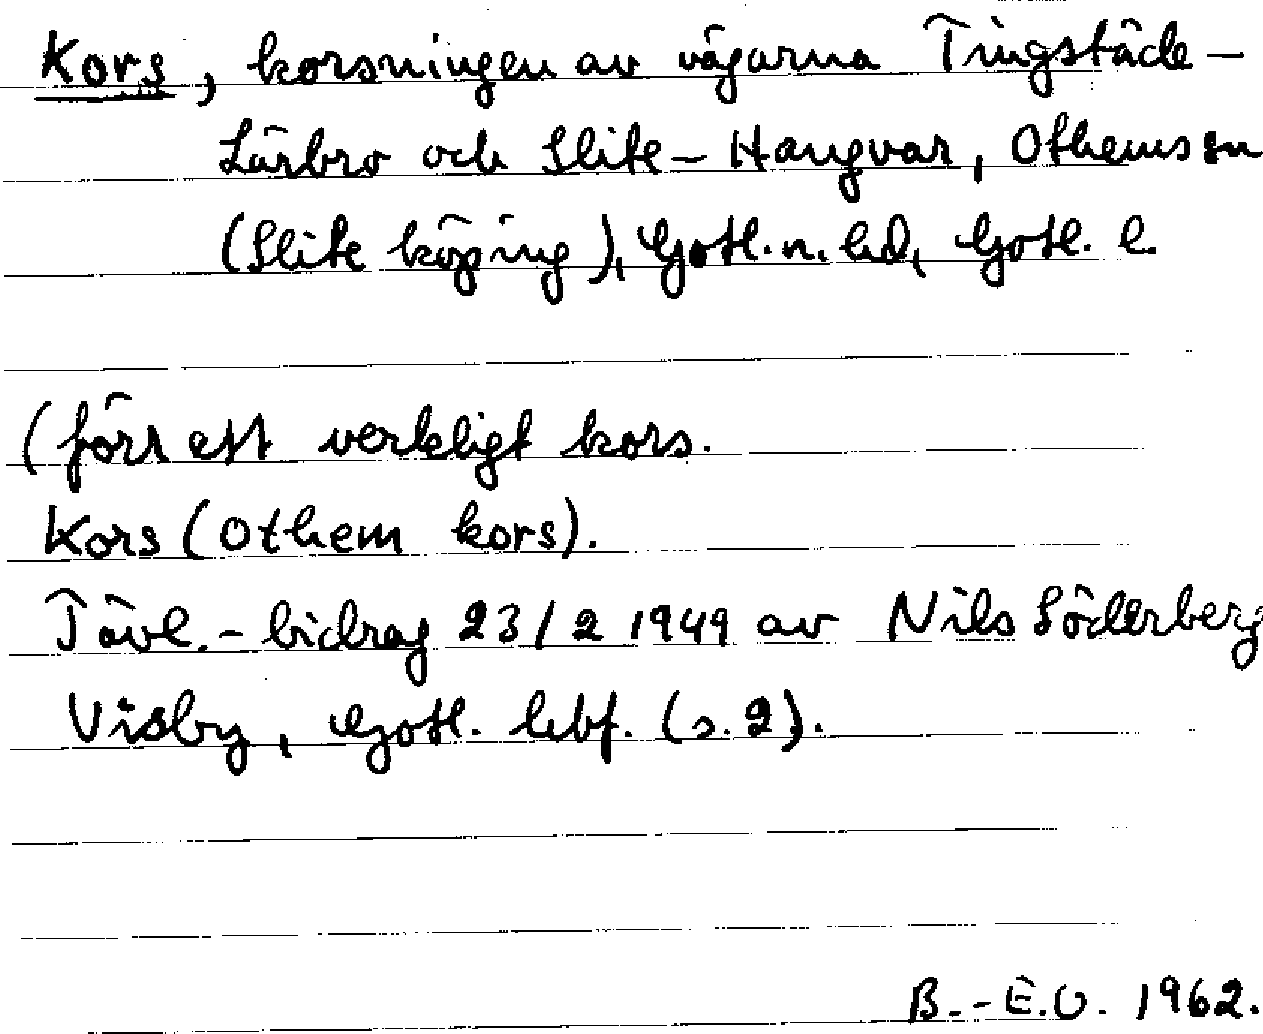 Kors, korsningen av vägarna Tingstäde –
Lärbro och Slite – Hangvar, Othems sn
(Slite köping), Gotl. n. hd, Gotl. l.
(förr ett verkligt kors.
Kors (Othem kors).
Tävl. - bidrag 23/2 1949 av Nils Söderberg
Visby, Gotl. lbf. (s. 2).
B.-E.O. 1962.